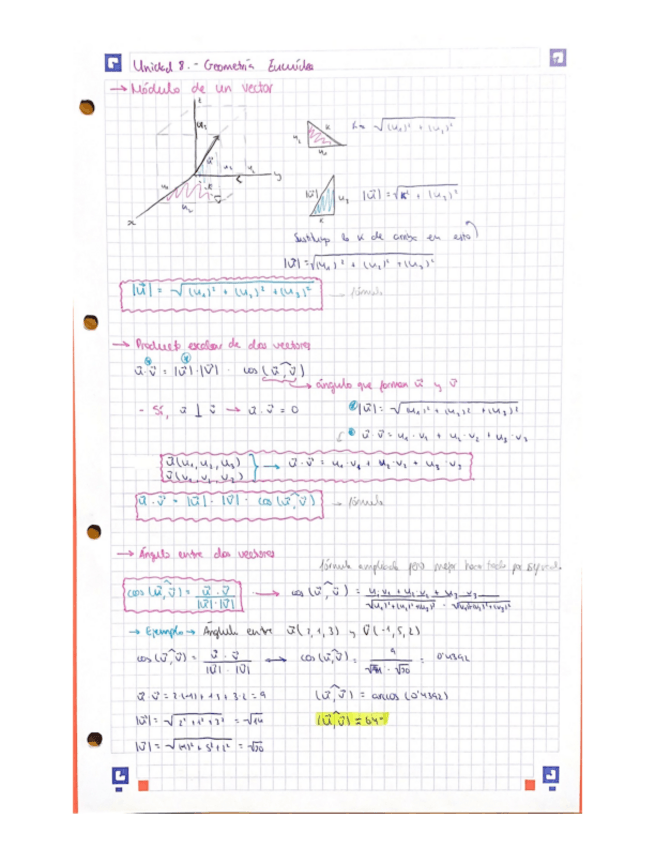 Unidad 8.- Geometría Euclídea
→ Módulo de un vector
z
y
x
k = √(u₁)² + (u₂)²
|ū| = √k² + (u₃)²
Sustituyo la k de arriba en esto
|ū| = √(u₁)² + (u₂)² + (u₃)²
|ū| = √(u₁)² + (u₂)² + (u₃)² → fórmula
→ Producto escalar de dos vectores
ū · v̄ = |ū| · |v̄| · cos (ū, v̄)
→ ángulo que forman ū y v̄
- Si, ū ⊥ v̄ → ū · v̄ = 0
|ū| = √(u₁)² + (u₂)² + (u₃)²
ū · v̄ = u₁ · v₁ + u₂ · v₂ + u₃ · v₃
ū (u₁, u₂, u₃)
v̄ (v₁, v₂, v₃)
→ ū · v̄ = u₁ · v₁ + u₂ · v₂ + u₃ · v₃
ū · v̄ = |ū| · |v̄| · cos (ū, v̄) → fórmula
→ Ángulo entre dos vectores
fórmula ampliada pero mejor hacerlo todo por
cos (ū, v̄) = ū · v̄ / |ū| · |v̄| → cos (ū, v̄) = u₁ v₁ + u₂ v₂ + u₃ v₃ / √(u₁)² + (u₂)² + (u₃)² · √(v₁)² + (v₂)² + (v₃)²
→ Ejemplo → Ángulo entre ū (2, 1, 3) y v̄ (-1, 5, 2)
cos (ū, v̄) = ū · v̄ / |ū| · |v̄| → cos (ū, v̄) = 9 / √14 · √30 = 0'4392
ū · v̄ = 2·(-1) + 1·5 + 3·2 = 9
(ū, v̄) = arcos (0'4392)
|ū| = √2² + 1² + 3² = √14
(ū, v̄) = 64°
|v̄| = √(-1)² + 5² + 2² = √30